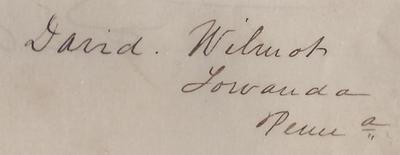 David. Wilmot
Towanda
Penna